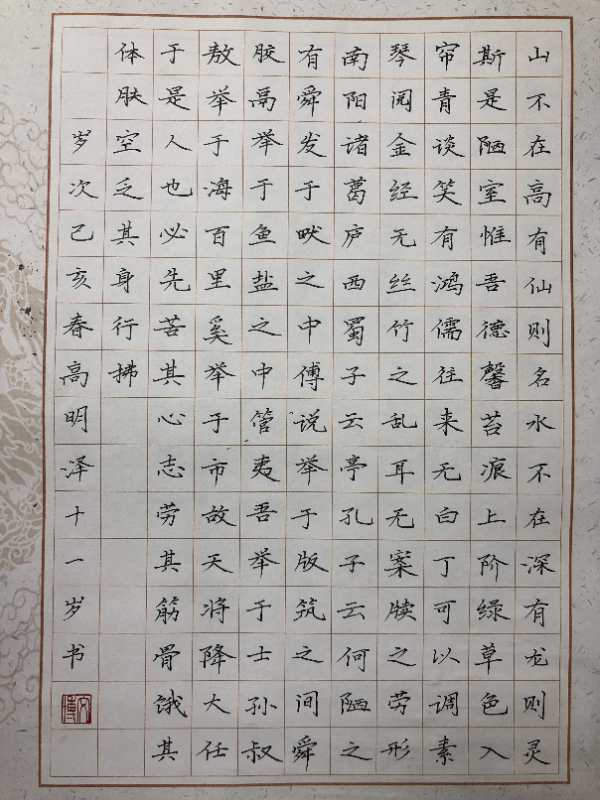 山不在高有仙则名水不在深有龙则灵
斯是陋室惟吾德馨苔痕上阶绿草色入
帘青谈笑有鸿儒往来无白丁可以调素
琴阅金经无丝竹之乱耳无案牍之劳形
南阳诸葛庐西蜀子云亭孔子云何陋之
有舜发于畎之中傅说举于版筑之间舜
胶鬲举于鱼盐之中管夷吾举于士孙叔
敖举于海百里奚举于市故天将降大任
于是人也必先苦其心志劳其筋骨饿其
体肤空乏其身行拂
岁次己亥春高明泽十一岁书